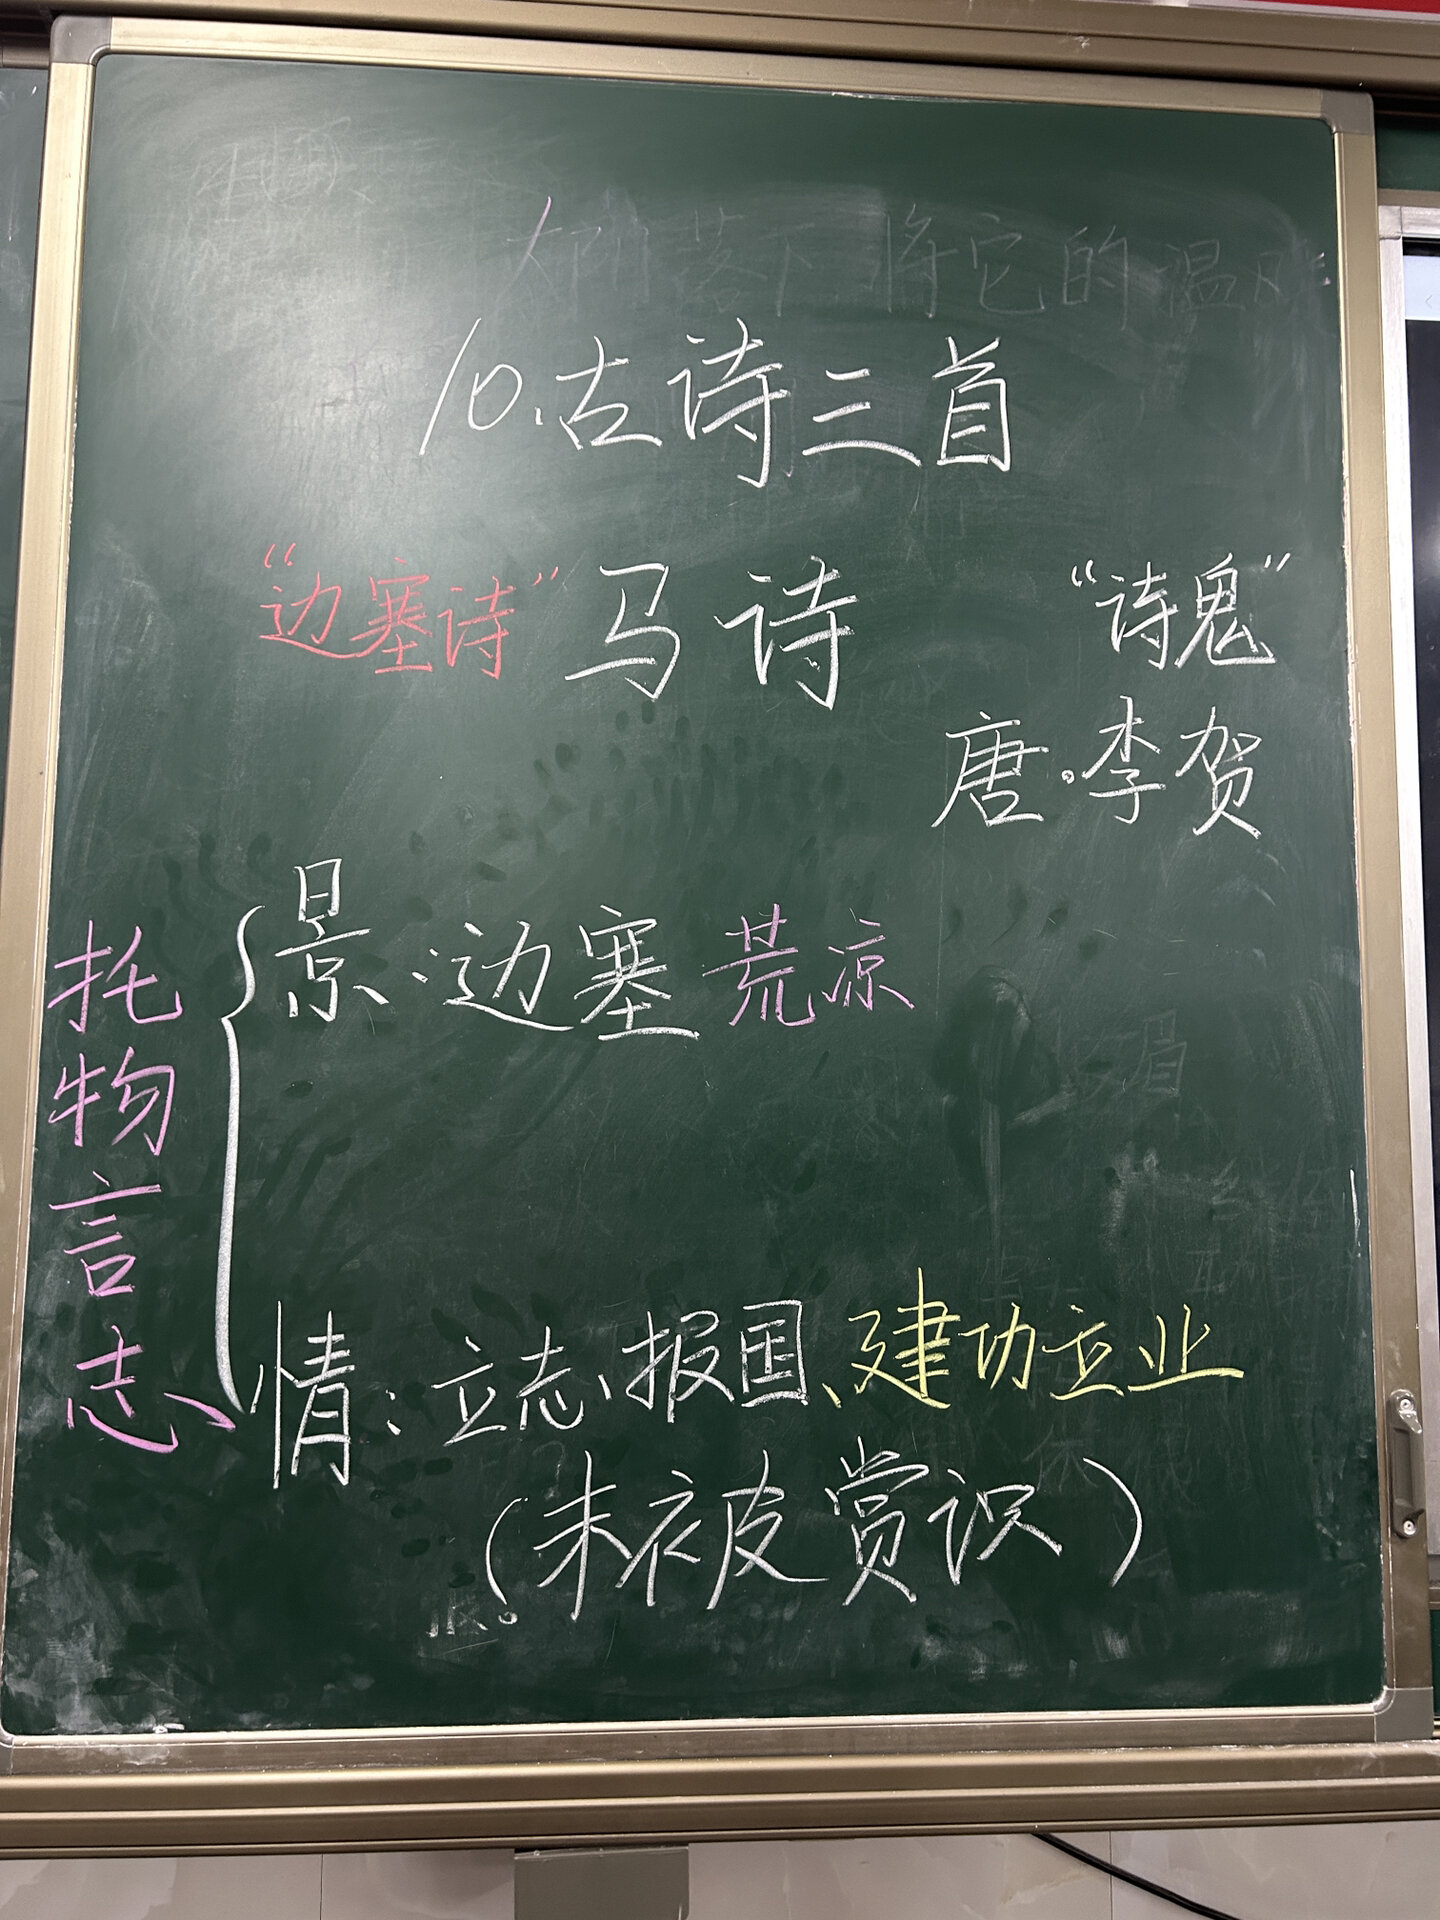 将它的温
10.古诗三首
“边塞诗” 马诗 “诗鬼”
唐·李贺
托物言志
景:边塞 荒凉
情:立志、报国、建功立业
(未被赏识)